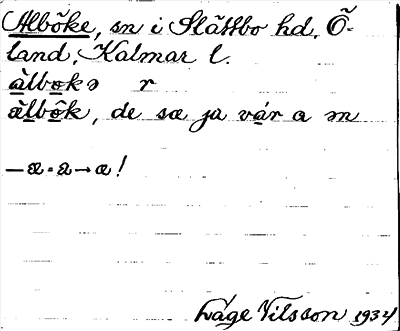 Alböke, sn i Slättbo hd, Ö-
land, Kalmar l.
àlbo̱kə r
æ̀lbô̱k, de sœ ja vá̱r a ən
— œ = a → œ!
Låge Nilsson 1934